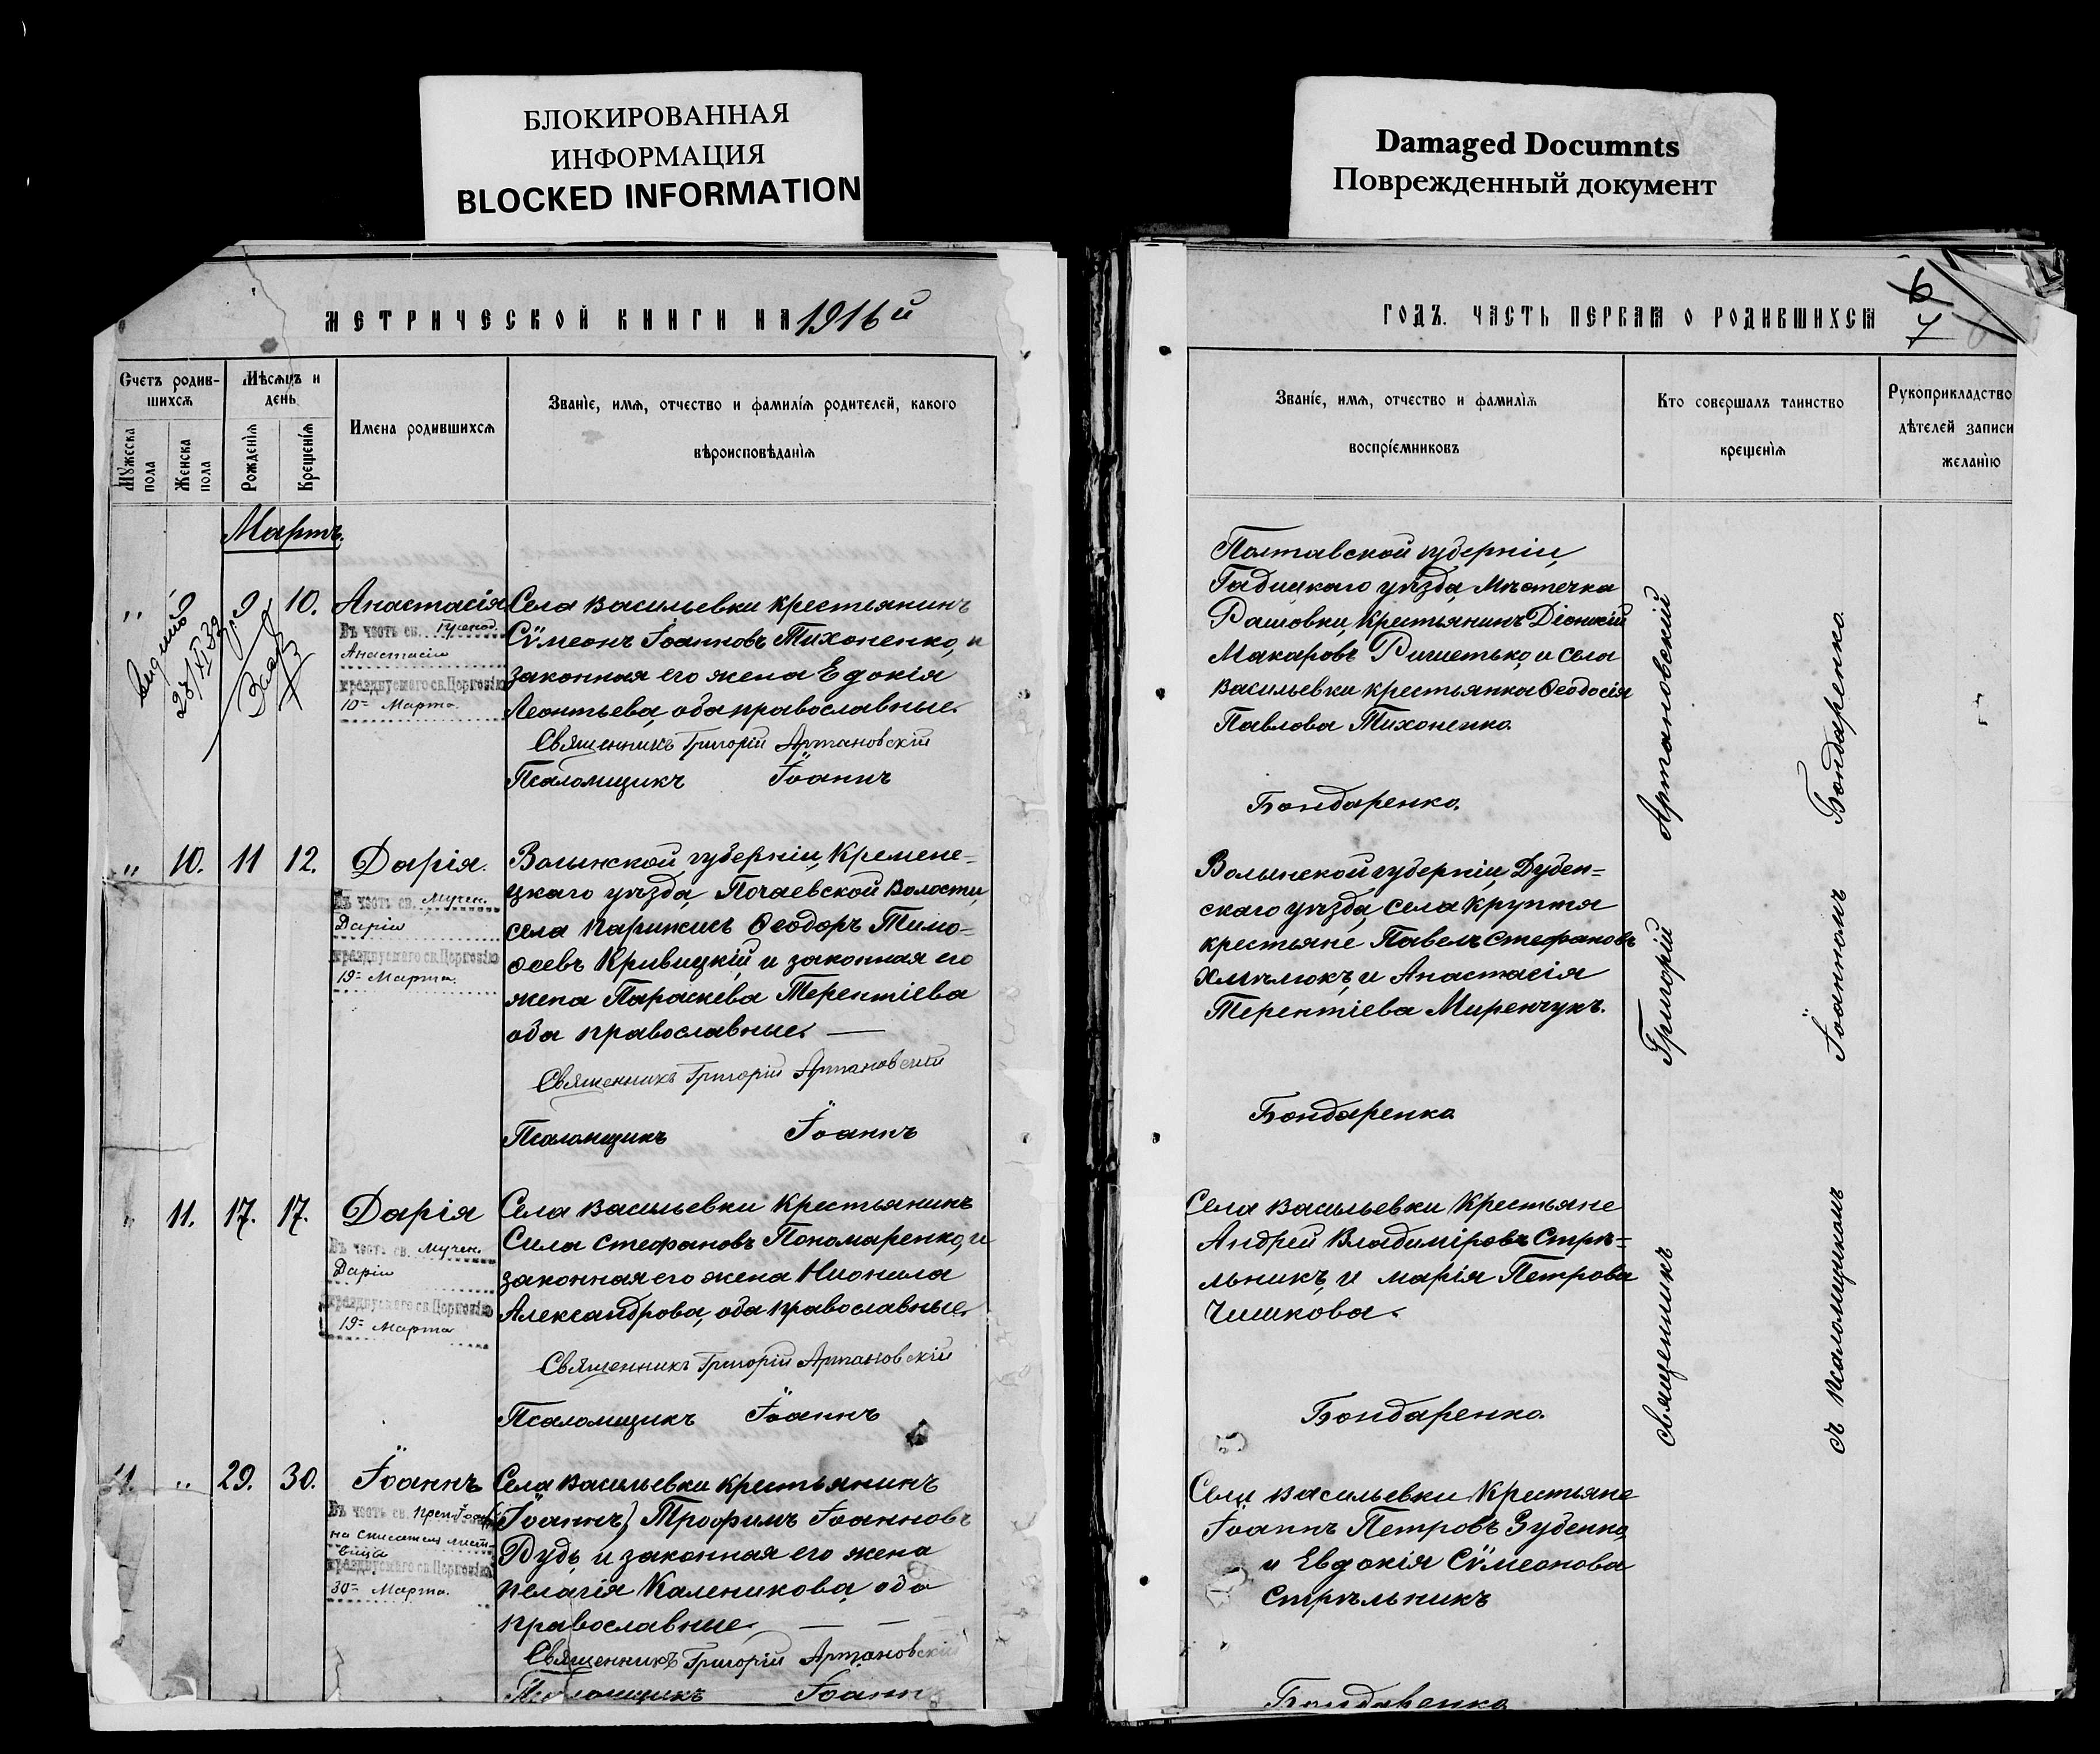 БЛОКИРОВАННАЯ
ИНФОРМАЦИЯ
BLOCKED INFORMATION
Damaged Documnts
Поврежденный документ
МЕТРИЧЕСКОЙ КНИГИ НА 1916й
Счетъ родив-
шихсѧ
Мѣсѧцъ и
день
Мужеска
пола
Женска
пола
Рожденїѧ
Крещенїѧ
Имена родившихсѧ
Званїе, имѧ, отчество и фамилїѧ родителей, какого
вѣроисповѣданїѧ
Мартъ.
" 9 9 10. Анастасія
28/XI 39
Въ честь св. Препод.
Анастасіи
празднуемаго св. Церковію
10= Марта
Села Васильевки крестьянинъ
Сѵмеонъ Іоанновъ Тихоненко, и
законная его жена Евдокія
Леонтьева, оба православные.
Священникъ Григорій Артановскій
Псаломщикъ Іоаннъ
" 10. 11 12. Дарія.
Въ честь св. Мучен.
Даріи
празднуемаго св. Церковію
19= Марта.
Волынской губерніи, Кремене=
цкаго уѣзда, Почаевской Волости,
села Парипсъ Ѳеодоръ Тимо=
ѳеевъ Кривицкій и законная его
жена Параскева Терентіева
оба православные. —
Священникъ Григорій Артановскій
Псаломщикъ Іоаннъ
" 11. 17. 17. Дарія
Въ честь св. Мучен.
Даріи
празднуемаго св. Церковію
19= Марта
Села Васильевки Крестьянинъ
Сила Стефановъ Пономаренко, и
законная его жена Неонила
Александрова, оба православные.
Священникъ Григорій Артановскій
Псаломщикъ Іоаннъ
" 29. 30. Іоаннъ
Въ честь св. преп. Іоан
на списателя лест-
вицы
празднуемаго св. Церковію
30= Марта.
Села Васильевки крестьянинъ
(Іоаннъ) Трофимъ Іоанновъ
Рудь и законная его жена
Пелагія Каленикова, оба
православные. — —
Священникъ Григорій Артановскій
Псаломщикъ Іоаннъ
ГОДЪ. ЧАСТЬ ПЕРВАѦ О РОДИВШИХСѦ
6
7
Званїе, имѧ, отчество и фамилїѧ
воспрїемниковъ
Кто совершалъ таинство
крещенїѧ
Рукоприкладство
дѣтелей записи
желанїю
Полтавской губерніи,
Гадяцкаго уѣзда, Мѣстечка
Рашовки, Крестьянинъ Діонисій
Макаровъ и села
Васильевки крестьянка Ѳеодосія
Павлова Тихоненко.
Бондаренко.
Волынской губерніи, Дубен=
скаго уѣзда, села Крупія
крестьяне Павелъ Стефановъ
Хмѣлюкъ, и Анастасія
Терентіева Миренчукъ.
Бондаренко
Села Васильевки Крестьяне
Андрей Владиміровъ Стрѣ=
льникъ, и Марія Петрова
Чишкова.
Бондаренко.
Села Васильевки Крестьяне
Іоаннъ Петровъ Зубенко,
и Евдокія Сѵмеонова
Стрѣльникъ
Бондаренко
Священникъ Григорій Артановскій
съ псаломщикомъ Іоанномъ Бондаренко.